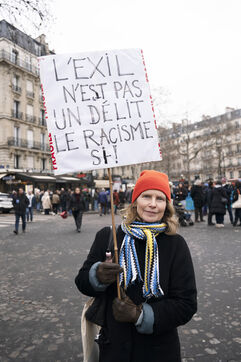 L'EXIL
N'EST PAS
UN DÉLIT
LE RACISME
SI!